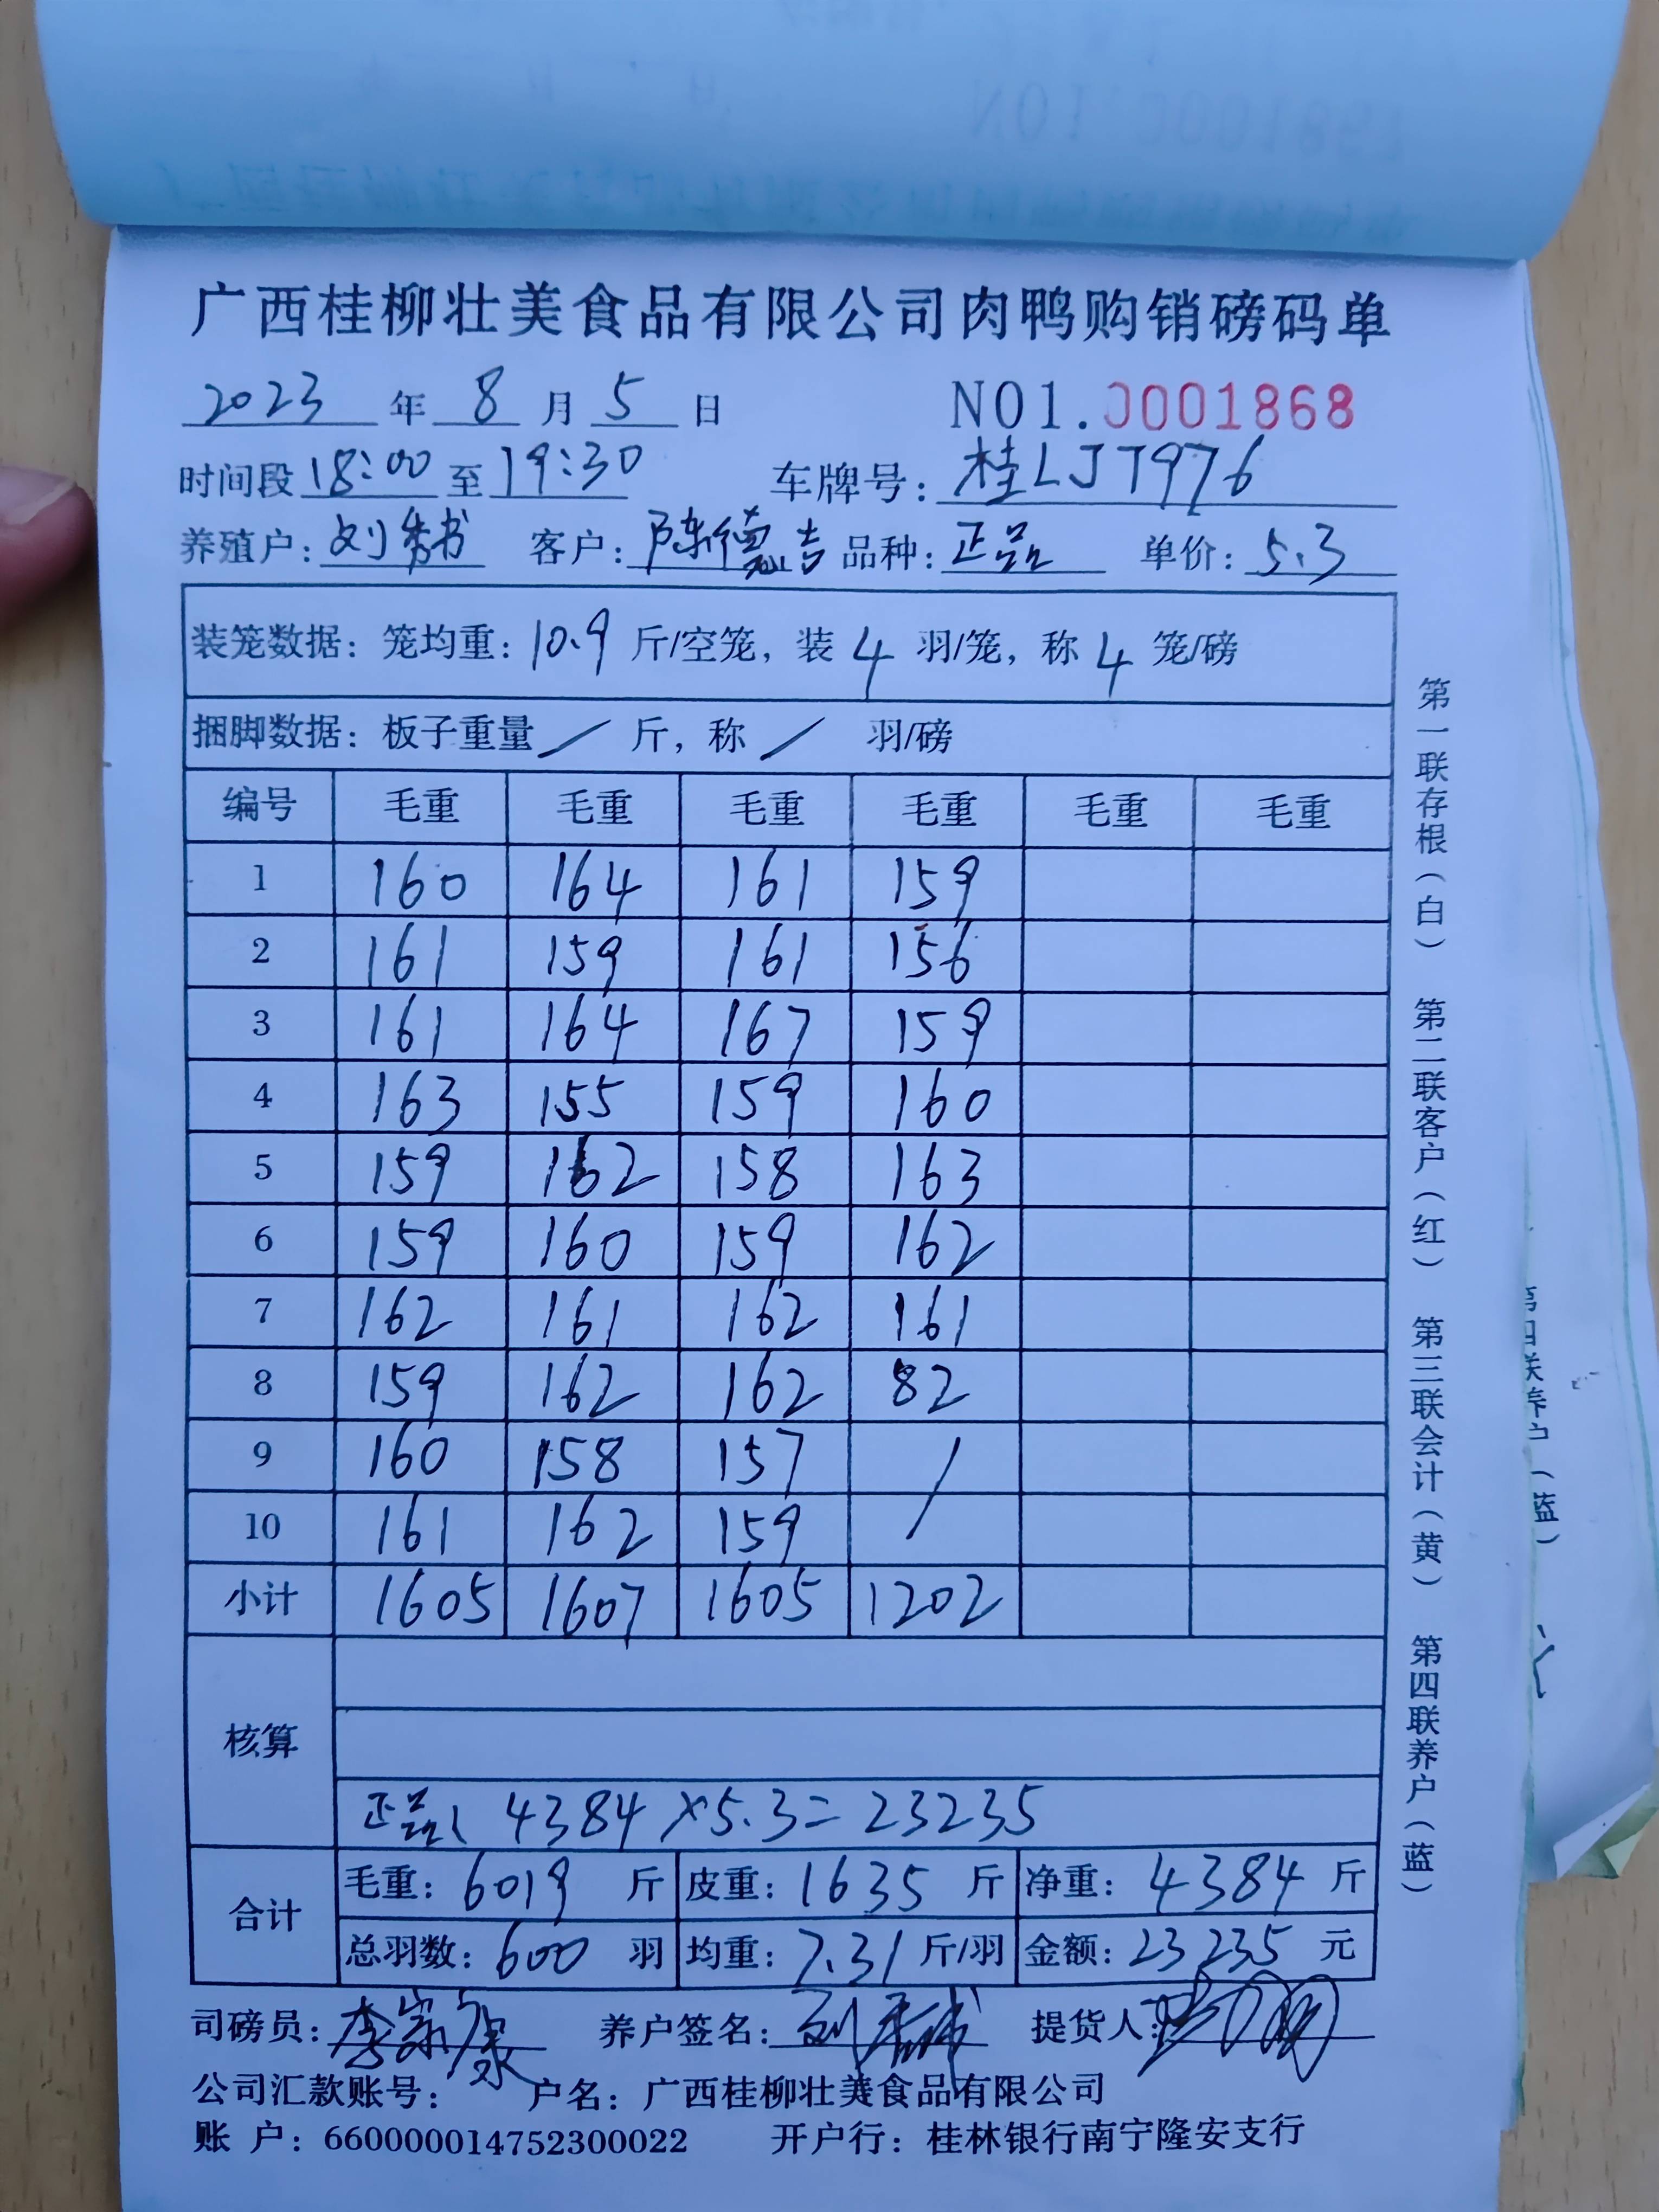 广西桂柳壮美食品有限公司肉鸭购销磅码单
2023 年 8 月 5 日 NO1.0001868
时间段 18:00 至 19:30 车牌号: 桂LJT976
养殖户: 刘秀书 客户: 陈德吉 品种: 正品 单价: 5.3
装笼数据: 笼均重: 10.9 斤/空笼, 装 4 羽/笼, 称 4 笼/磅
捆脚数据: 板子重量 / 斤, 称 / 羽/磅
编号 毛重 毛重 毛重 毛重 毛重 毛重
1 160 164 161 159
2 161 159 161 156
3 161 164 167 159
4 163 155 159 160
5 159 162 158 163
6 159 160 159 162
7 162 161 162 161
8 159 162 162 82
9 160 158 157 /
10 161 162 159
小计 1605 1607 1605 1202
核算
正品、4384×5.3=23235
合计
毛重: 6019 斤 皮重: 1635 斤 净重: 4384 斤
总羽数: 600 羽 均重: 7.31 斤/羽 金额: 23235 元
司磅员: 李家 养户签名: 刘 提货人:
公司汇款账号: 户名: 广西桂柳壮美食品有限公司
账 户: 660000014752300022 开户行: 桂林银行南宁隆安支行
第一联存根(白) 第二联客户(红) 第三联会计(黄) 第四联养户(蓝)
联养户(蓝)